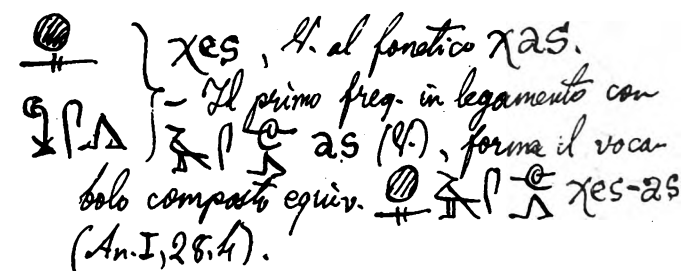 𓐍𓊃 } χes, V. al fonetico χas.
– Il primo freq. in legamento con
𓋴𓂻 as (V.), forma il voca-
bolo composto equiv. 𓐍𓊃 χes-as
(An. I, 28. 4).